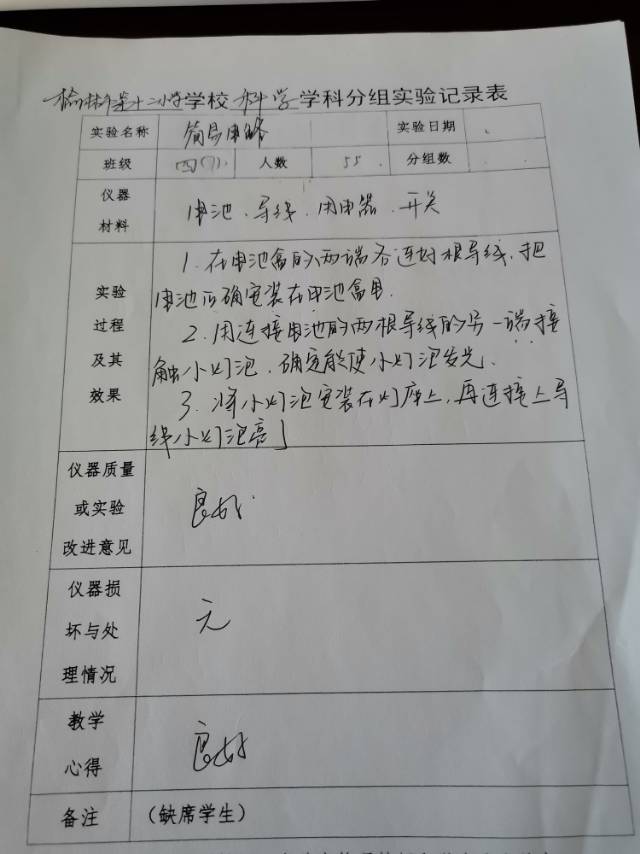 榆林市第十二小学学校 科学 学科分组实验记录表
实验名称 简易电路 实验日期
班级 四(7) 人数 55 分组数
仪器材料 电池、导线、用电器、开关
实验过程及其效果
1. 在电池盒的两端各连好根导线,把
电池正确安装在电池盒里.
2. 用连接电池的两根导线的另一端接
触小灯泡,确定能使小灯泡发光.
3. 将小灯泡安装在灯座上,再连接上导
线小灯泡亮了
仪器质量或实验改进意见 良好.
仪器损坏与处理情况 无
教学心得 良好
备注 (缺席学生)